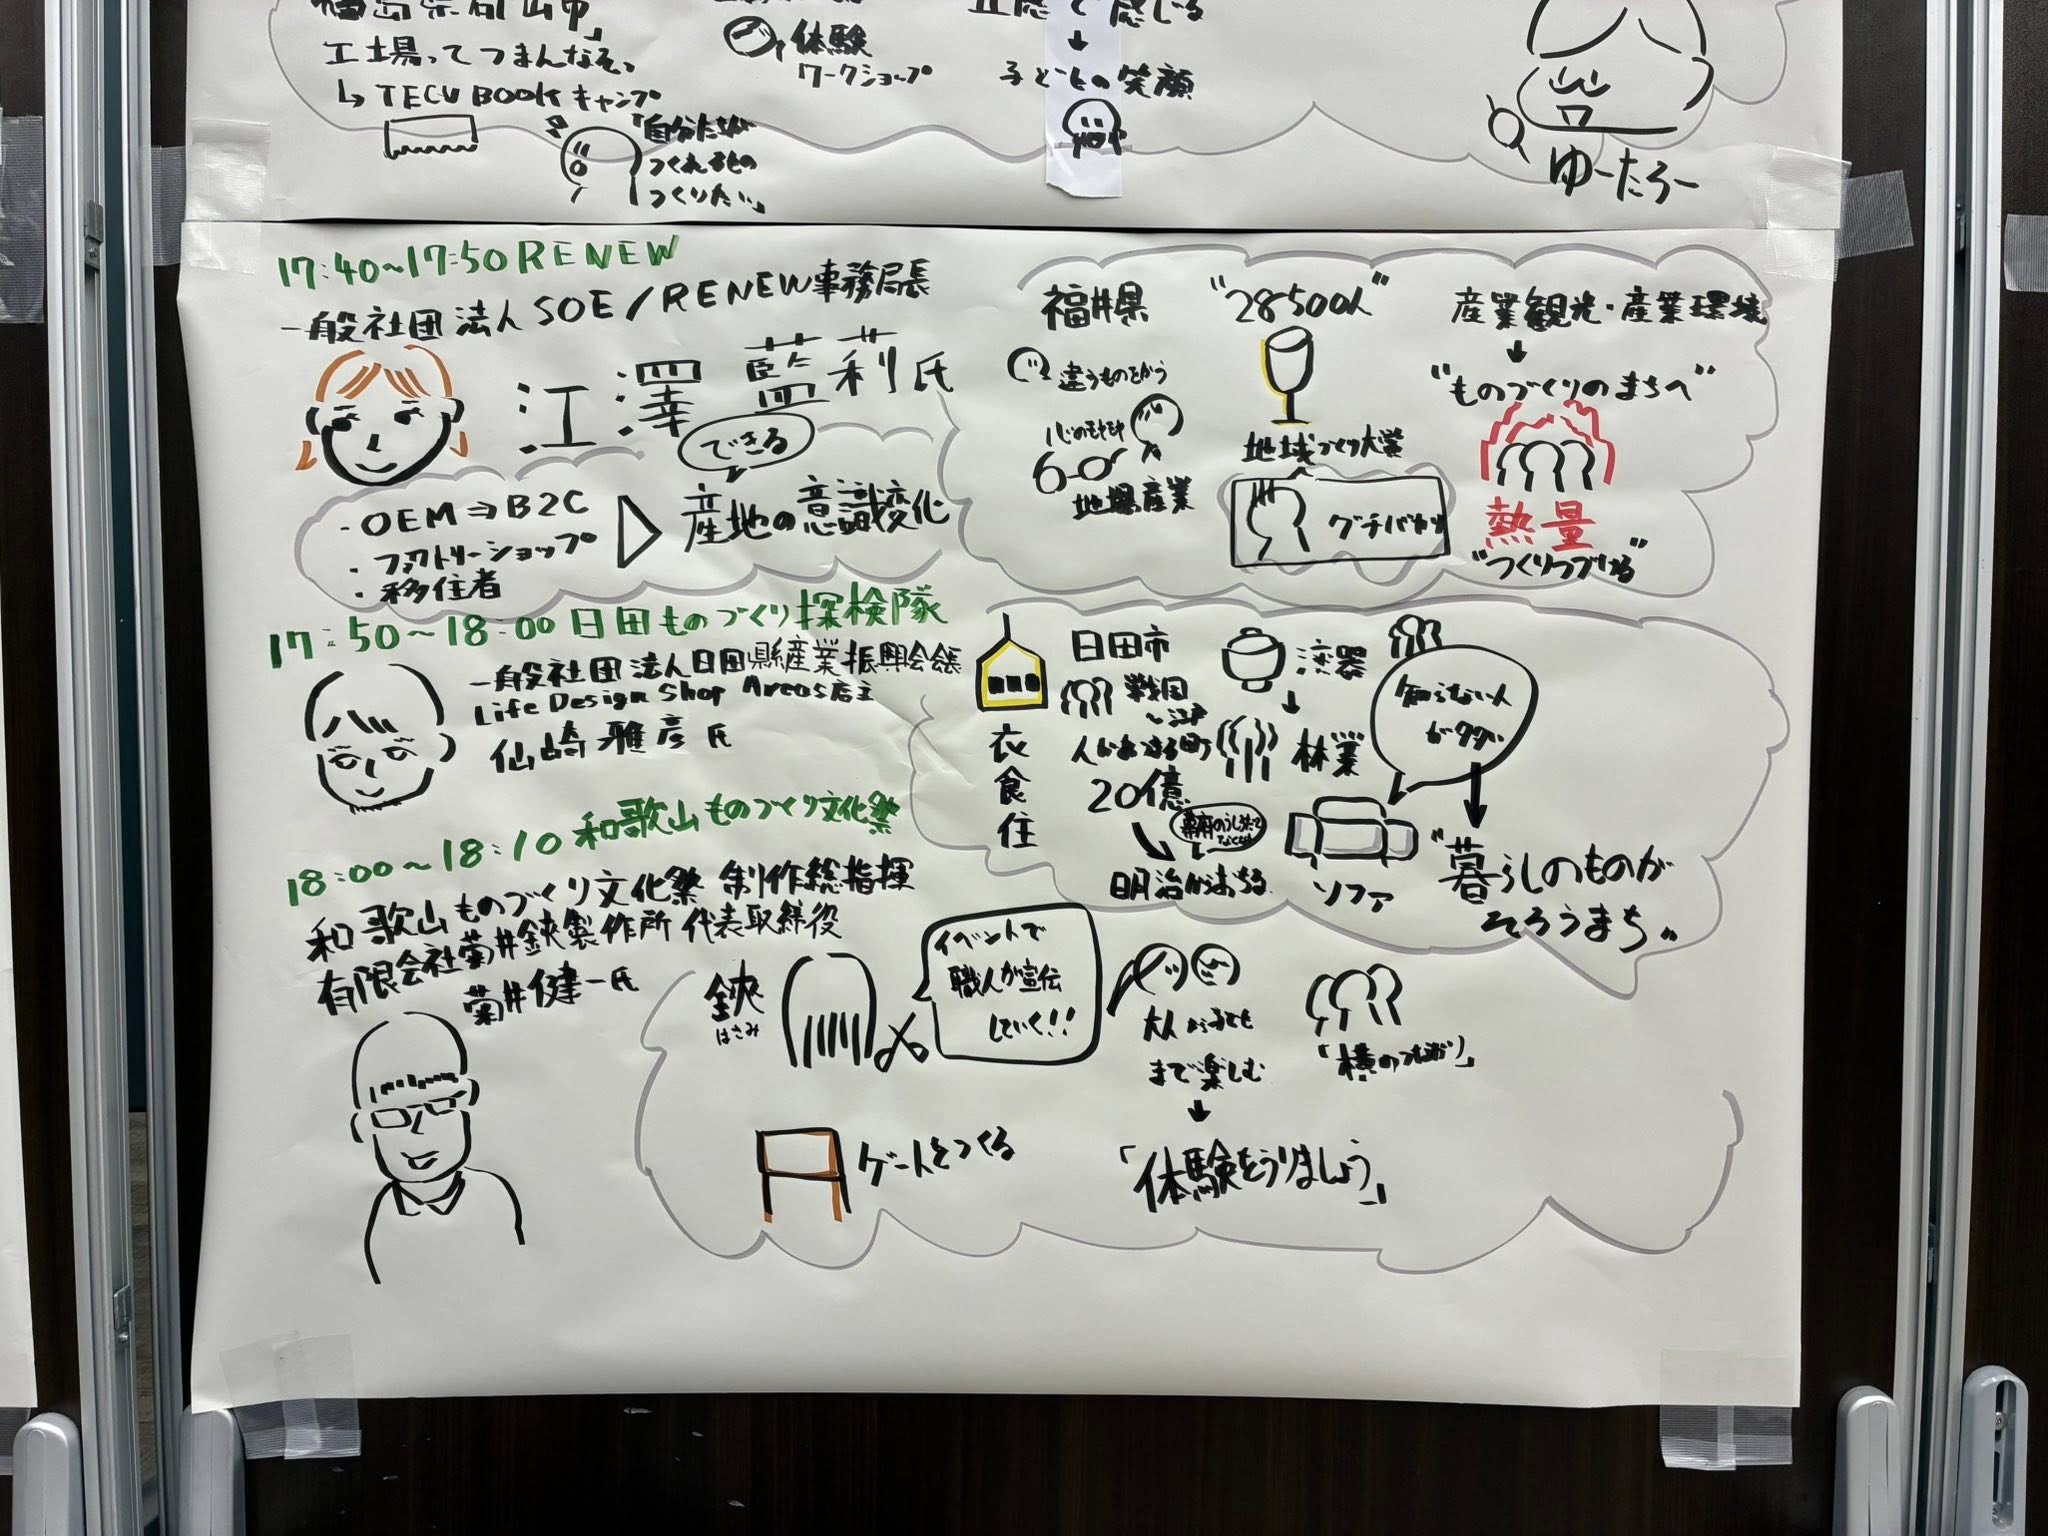 工場ってつまんなそっ
↳ TECH BOOK キャンプ
「自分たちが
つくれるもの
つくりたい」
体験
ワークショップ
五感で感じる
↓
子どもの笑顔
ゆーたろー
17:40~17:50 RENEW
一般社団法人SOE/RENEW事務局長
江澤 藍莉氏
できる
・OEM⇒B2C
・ファクトリーショップ
・移住者
産地の意識変化
福井県
違うものをかう
地場産業
"28500人"
地域づくり大賞
グチバカリ
産業観光・産業環境
↓
"ものづくりのまちへ"
熱量
"つくりつづける"
17:50~18:00 日田ものづくり探検隊
一般社団法人日田県産業振興会会長
Life Design Shop Areas店主
仙崎雅彦氏
衣
食
住
日田市
戦国
~江戸
人があつまる町
20億
明治からおちる
漆器
↓
林業
知らない人
が多い
ソファ
"暮らしのものが
そろうまち"
18:00~18:10 和歌山ものづくり文化祭
和歌山ものづくり文化祭 制作総指揮
有限会社菊井鋏製作所 代表取締役
菊井健一氏
鋏
はさみ
イベントで
職人が宣伝
していく!!
大人から子ども
まで楽しむ
↓
「体験をうりましょう」
「横のつながり」
ゲートをつくる